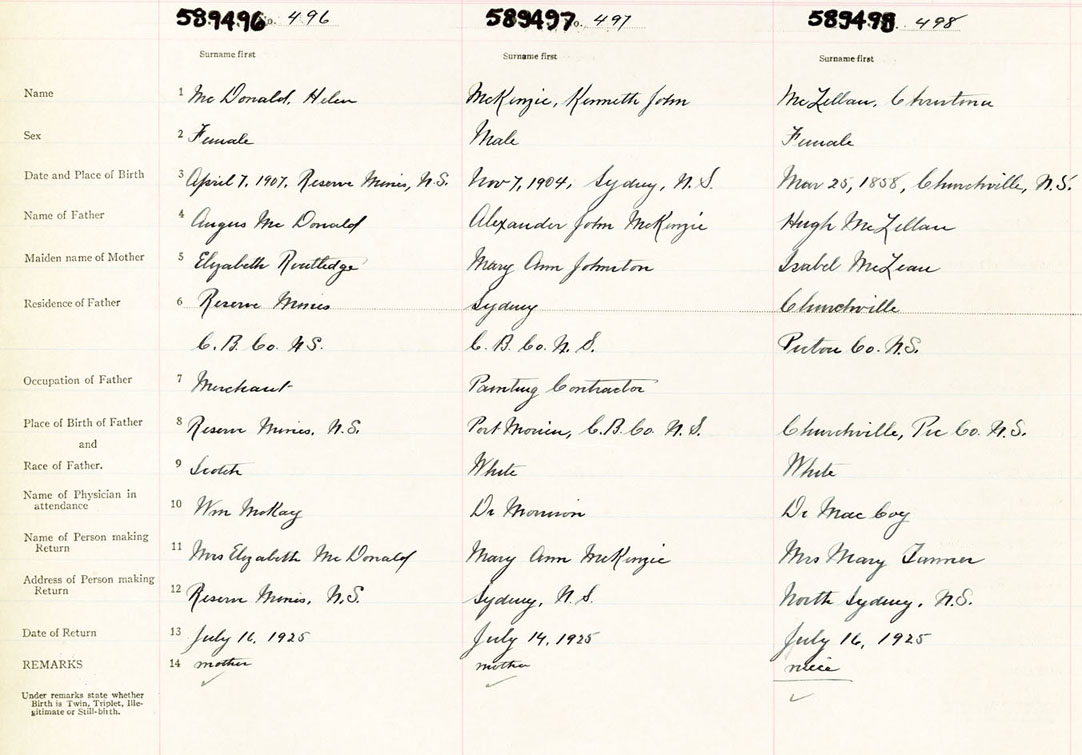 589496 No. 496 589497 No. 497 589498 498
Surname first Surname first Surname first
Name 1 McDonald, Helen McKenzie, Kenneth John McLellan, Christona
Sex 2 Female Male Female
Date and Place of Birth 3 April 7, 1907, Reserve Mines, N.S. Nov 7, 1904, Sydney, N.S. Mar 25, 1858, Churchville, N.S.
Name of Father 4 Angus McDonald Alexander John McKenzie Hugh McLellan
Maiden name of Mother 5 Elizabeth Routledge Mary Ann Johnston Isabel McLean
Residence of Father 6 Reserve Mines Sydney Churchville
C.B. Co. N.S. C.B. Co. N.S. Pictou Co. N.S.
Occupation of Father 7 Merchant Painting Contractor
Place of Birth of Father 8 Reserve Mines, N.S. Port Morien, C.B. Co. N.S. Churchville, Pic Co. N.S.
and
Race of Father. 9 Scotch White White
Name of Physician in
attendance 10 Wm McKay Dr Morrison Dr MacCoy
Name of Person making
Return 11 Mrs Elizabeth McDonald Mary Ann McKenzie Mrs Mary Tanner
Address of Person making
Return 12 Reserve Mines, N.S. Sydney, N.S. North Sydney, N.S.
Date of Return 13 July 16, 1925 July 14, 1925 July 16, 1925
REMARKS 14 mother mother niece
Under remarks state whether
Birth is Twin, Triplet, Ille-
gitimate or Still-birth.